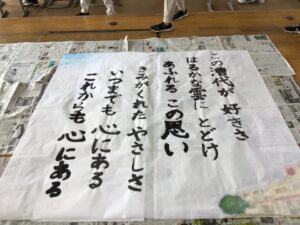 この港代が 好きさ
はるかな雲に とどけ
あふれる この思い
きみがくれた やさしさ
いつまでも 心にある
これからも 心にある